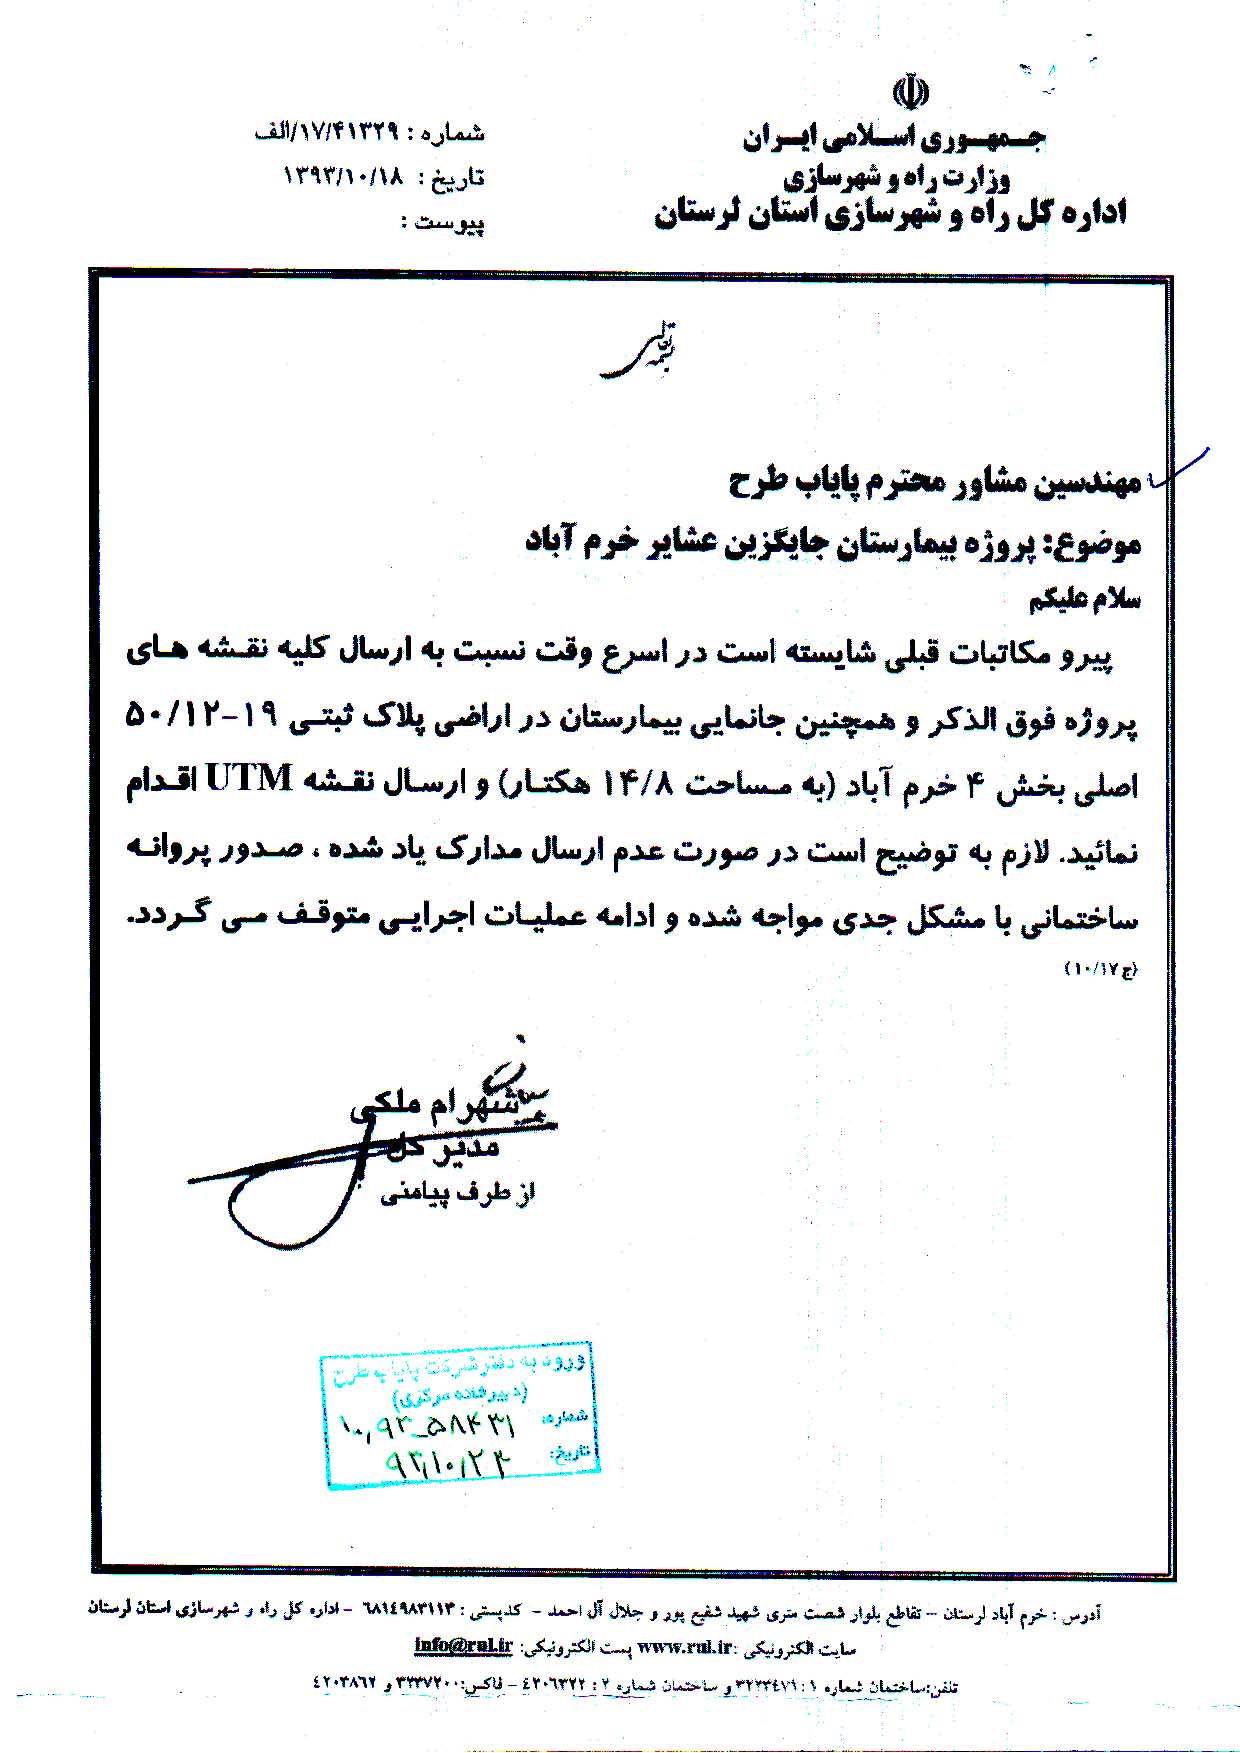 جمهوری اسلامی ایران
وزارت راه و شهرسازی
اداره کل راه و شهرسازی استان لرستان
شماره : ۱۷/۴۱۳۲۹/الف
تاریخ : ۱۳۹۳/۱۰/۱۸
پیوست :
بسمه تعالی
مهندسین مشاور محترم پایاب طرح
موضوع: پروژه بیمارستان جایگزین عشایر خرم آباد
سلام علیکم
پیرو مکاتبات قبلی شایسته است در اسرع وقت نسبت به ارسال کلیه نقشه های
پروژه فوق الذکر و همچنین جانمایی بیمارستان در اراضی پلاک ثبتی ۱۹-۵۰/۱۲
اصلی بخش ۴ خرم آباد (به مساحت ۱۴/۸ هکتار) و ارسال نقشه UTM اقدام
نمائید. لازم به توضیح است در صورت عدم ارسال مدارک یاد شده ، صدور پروانه
ساختمانی با مشکل جدی مواجه شده و ادامه عملیات اجرایی متوقف می گردد.
(ج۱۰/۱۷)
شهرام ملکی
مدیر کل
از طرف پیامنی
ورود به دفتر شرکت پایاب طرح
(دبیرخانه مرکزی)
شماره: ۱۰,۹۳_۵۸۴۳۱
تاریخ: ۹۳/۱۰/۲۳
آدرس : خرم آباد لرستان – تقاطع بلوار شصت متری شهید شفیع پور و جلال آل احمد – کدپستی : ۶۸۱٤۹۸۳۱۱۳ – اداره کل راه و شهرسازی استان لرستان
سایت الکترونیکی :www.rul.ir پست الکترونیکی: info@rul.ir
تلفن:ساختمان شماره ۱ : ۳۲۲۳٤۷۱ و ساختمان شماره ۲ : ٤۲۰٦۳۲۲ – فاکس:۳۲۳۷۲۰۰ و ٤۲۰۳۸٦۲